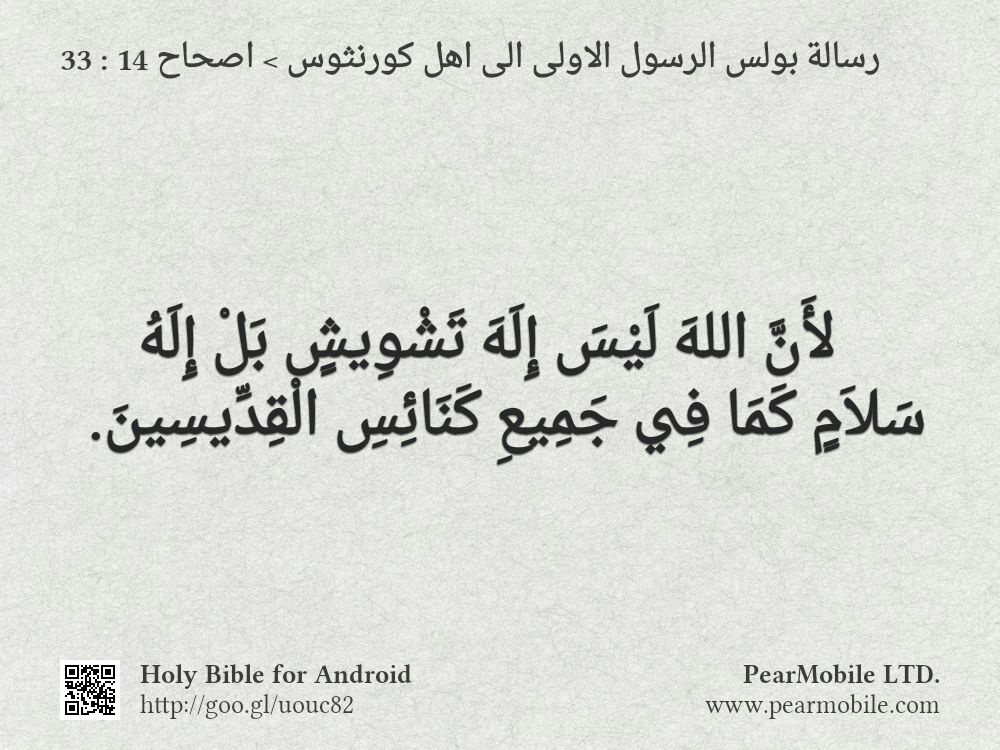 رسالة بولس الرسول الاولى الى اهل كورنثوس > اصحاح 14 : 33
لأَنَّ اللهَ لَيْسَ إِلَهَ تَشْوِيشٍ بَلْ إِلَهُ
سَلاَمٍ كَمَا فِي جَمِيعِ كَنَائِسِ الْقِدِّيسِينَ.
Holy Bible for Android
http://goo.gl/uouc82
PearMobile LTD.
www.pearmobile.com